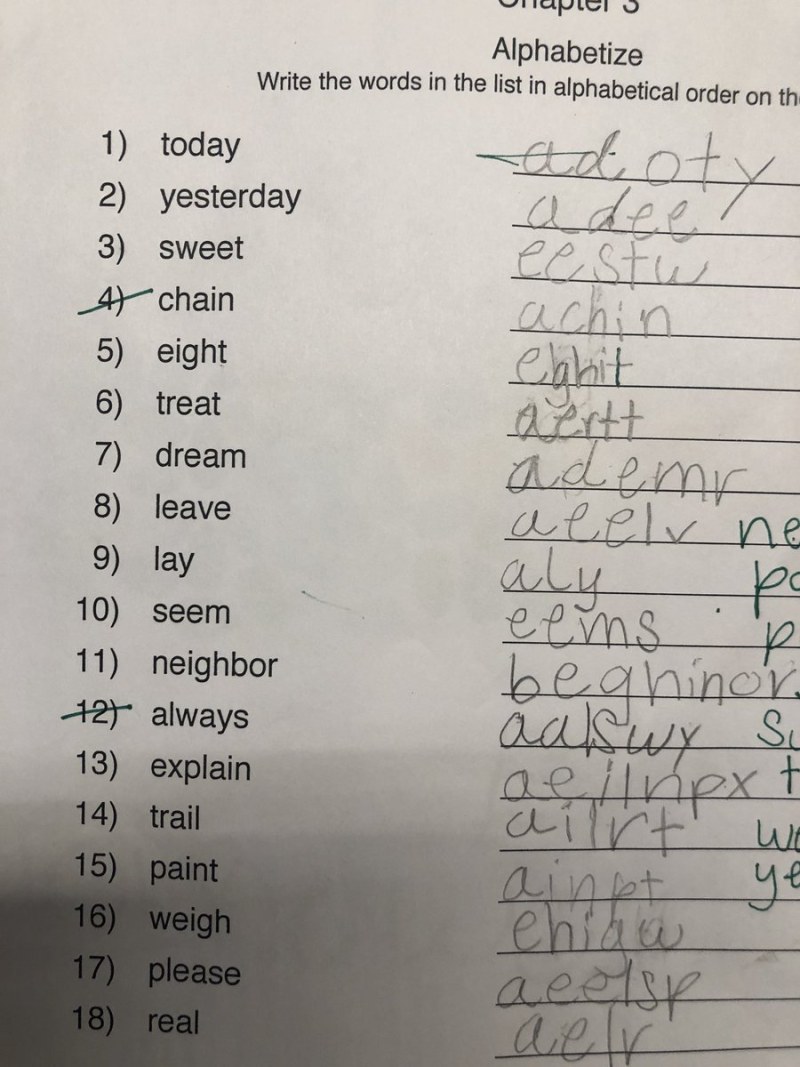 Chapter 3
Alphabetize
Write the words in the list in alphabetical order on the
1) today adoty
2) yesterday adee
3) sweet eestw
4) chain achin
5) eight eghit
6) treat aertt
7) dream ademr
8) leave aeelv ne
9) lay aly po
10) seem eems p
11) neighbor beghinor
12) always aalswy
13) explain aeilnpx t
14) trail ailrt w
15) paint ainpt ye
16) weigh ehigw
17) please aeelsp
18) real aelr